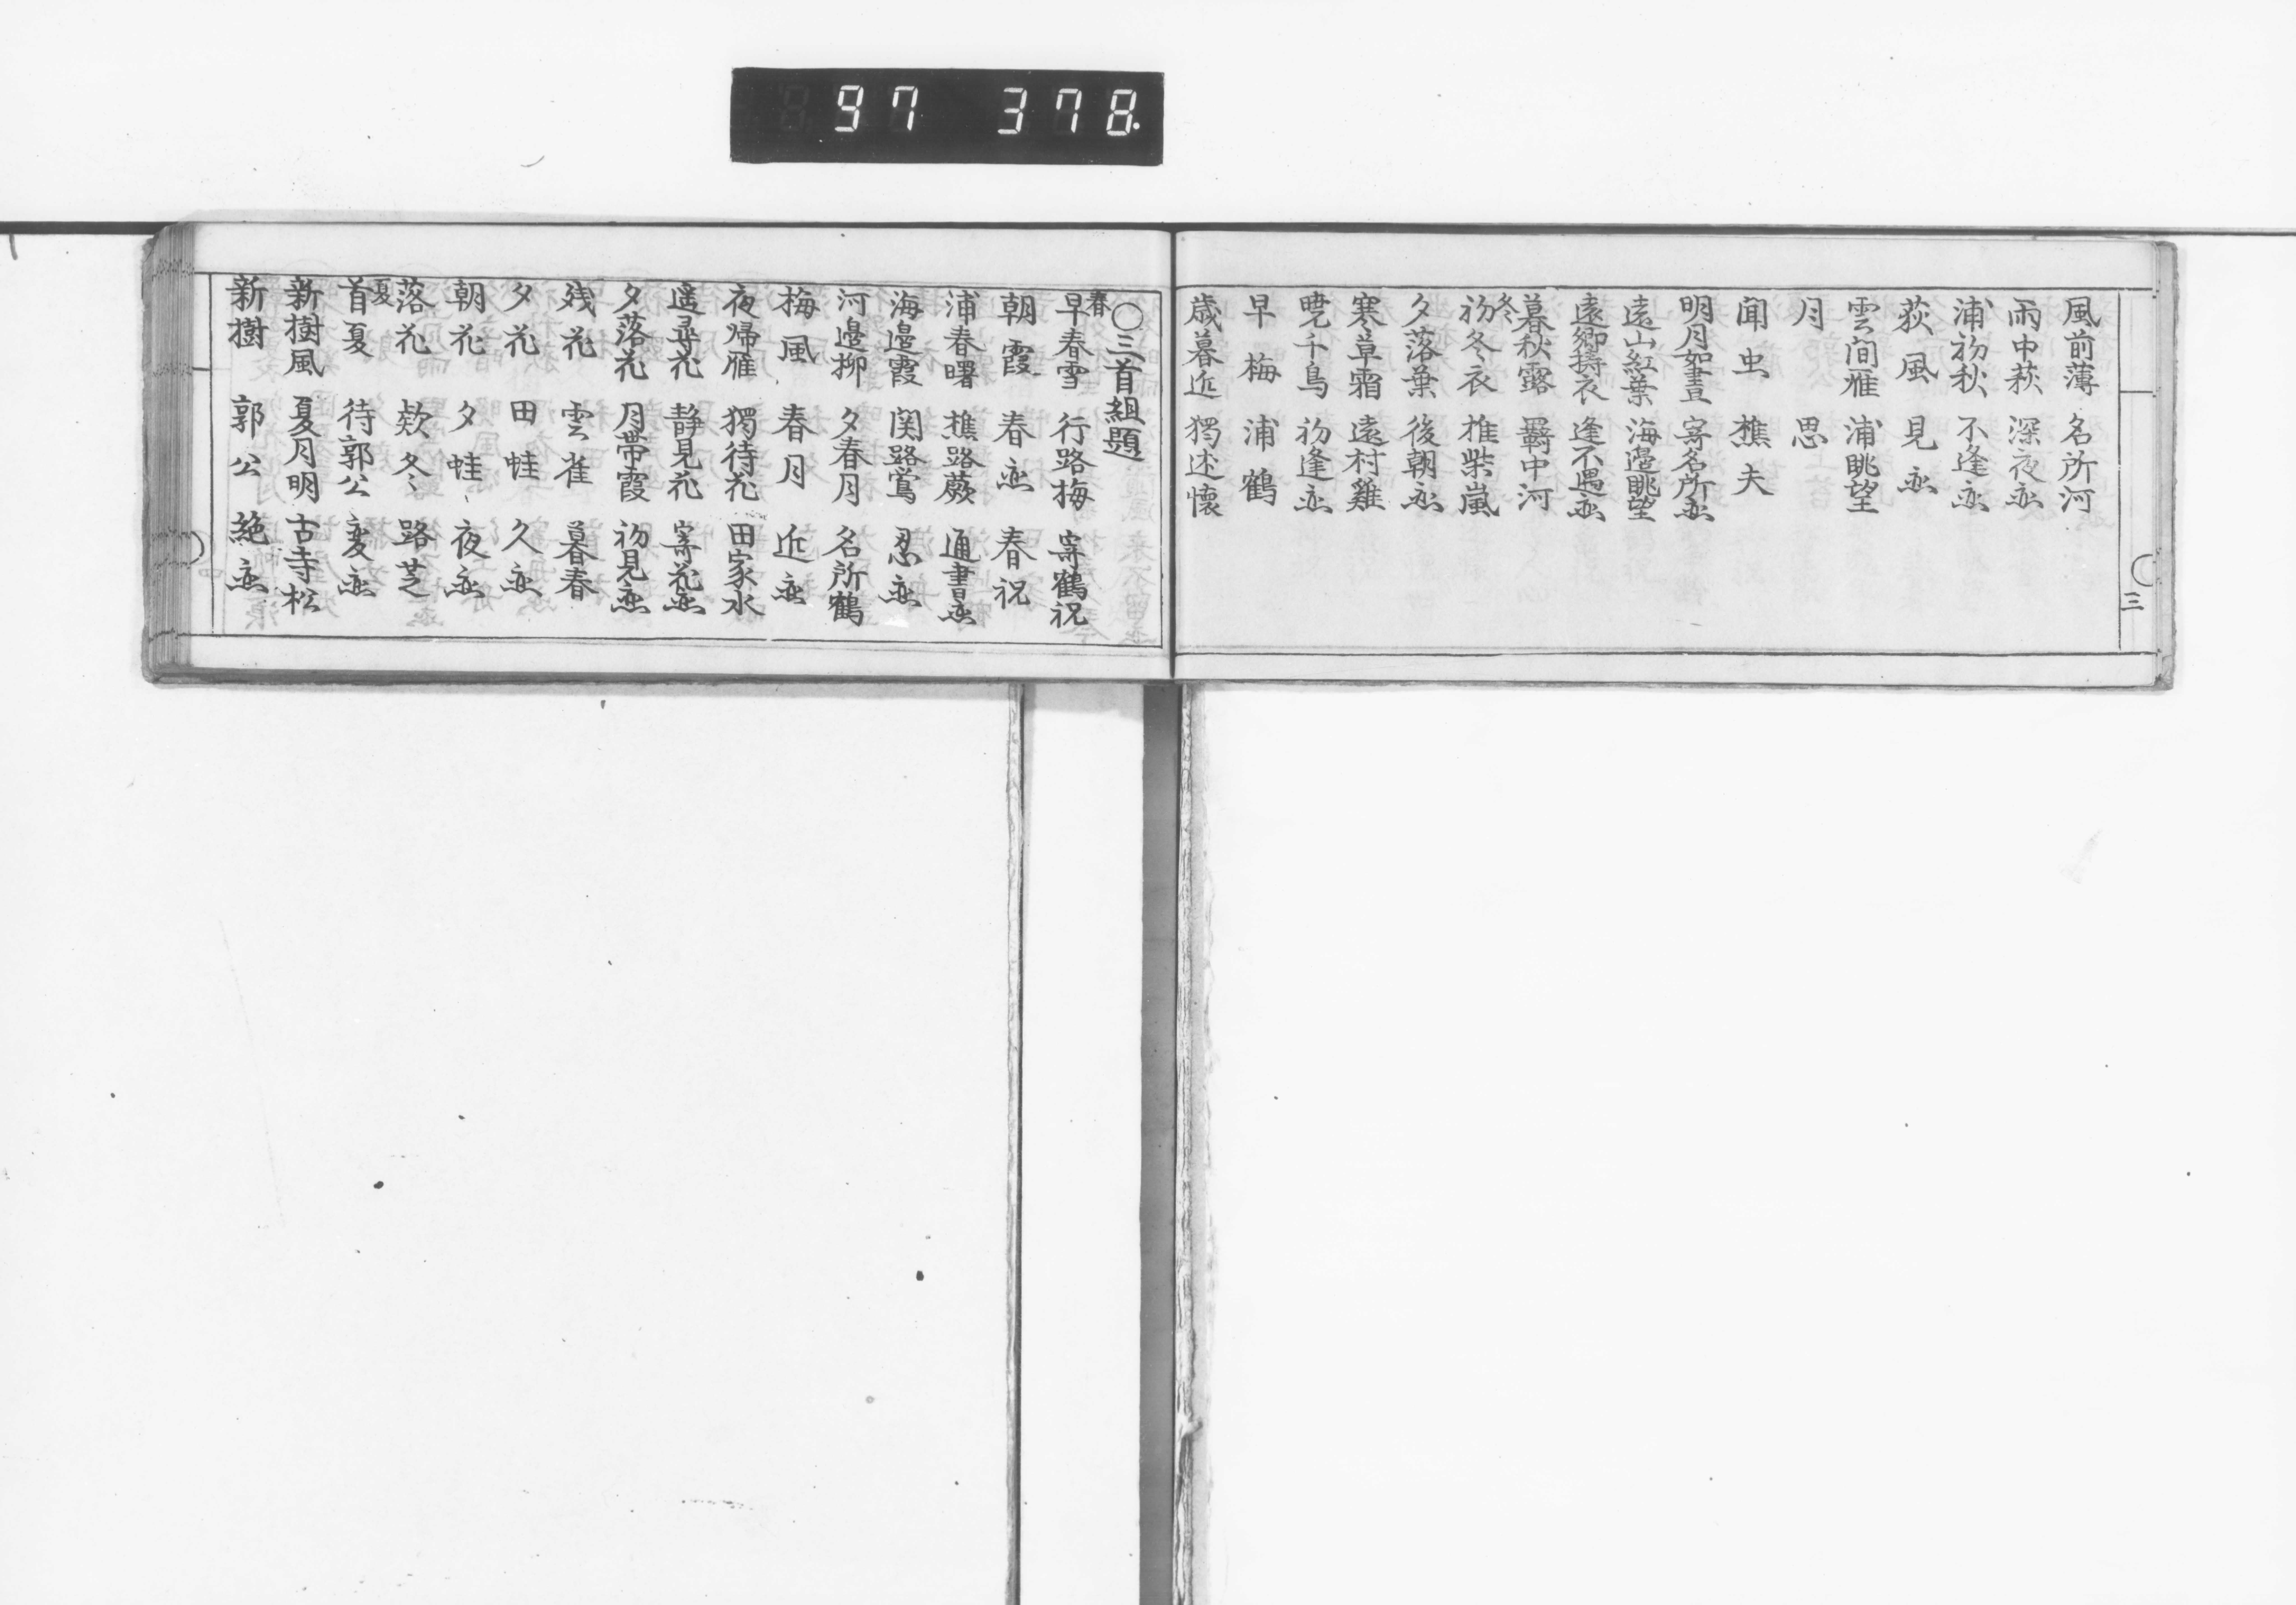 97 378.
風前薄 名所河
雨中萩 深夜恋
浦初秋 不逢恋
荻風 見恋
雲間雁 浦眺望
月 思
聞虫 樵夫
明月如晝 寄名所恋
遠山紅葉 海邉眺望
遠郷擣衣 逢不遇恋
暮秋露 羇中河
冬
初冬衣 推柴嵐
夕落葉 後朝恋
寒草霜 遠村雞
暁千鳥 初逢恋
早梅 浦鶴
歳暮近 獨述懐
三
〇三首組題
春
早春雪 行路梅 寄鶴祝
朝霞 春恋 春祝
浦春曙 樵路蕨 通書恋
海邉霞 関路鴬 忍恋
河邉柳 夕春月 名所鶴
梅風 春月 近恋
夜帰雁 獨待花 田家水
遥尋花 静見花 寄花恋
夕落花 月帯霞 初見恋
残花 雲雀 暮春
夕花 田蛙 久恋
朝花 夕蛙 夜恋
落花 欸冬 路芝
夏
首夏 待郭公 変恋
新樹風 夏月明 古寺松
新樹 郭公 絶恋